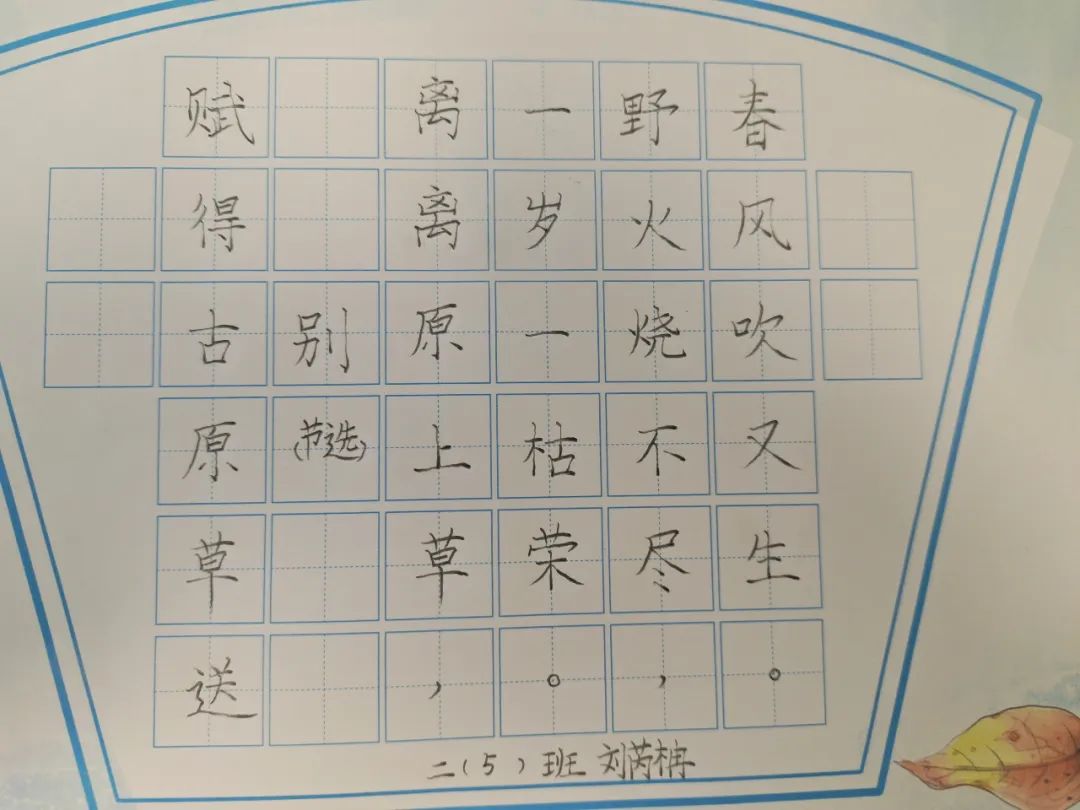 赋得古原草送
别
(节选)
离离原上草，
一岁一枯荣。
野火烧不尽，
春风吹又生。
二(5)班 刘芮柟